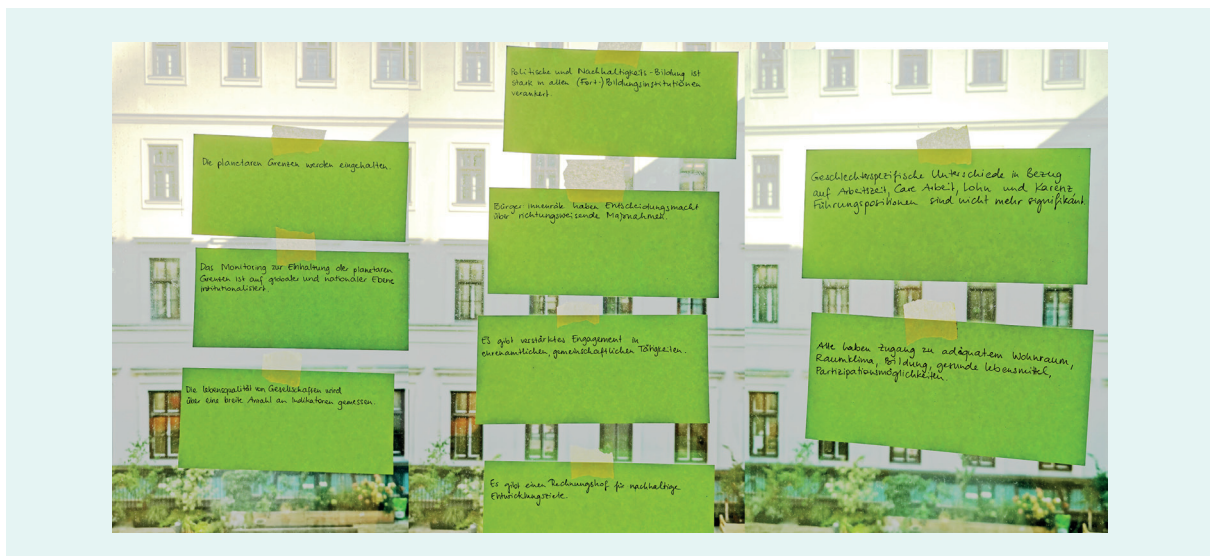 Die planetaren Grenzen werden eingehalten.
Das Monitoring zur Einhaltung der planetaren
Grenzen ist auf globaler und nationaler Ebene
institutionalisiert.
Die Lebensqualität von Gesellschaften wird
über eine breite Anzahl an Indikatoren gemessen.
Politische und Nachhaltigkeits-Bildung ist
stark in allen (Fort-)Bildungsinstitutionen
verankert.
Bürger:innenräte haben Entscheidungsmacht
über richtungsweisende Maßnahmen
Es gibt verstärktes Engagement in
ehrenamtlichen, gemeinschaftlichen Tätigkeiten.
Es gibt einen Rechnungshof für nachhaltige
Entwicklungsziele.
Geschlechterspezifische Unterschiede in Bezug
auf Arbeitszeit, Care Arbeit, Lohn und Karenz,
Führungspositionen sind nicht mehr signifikant
Alle haben Zugang zu adäquatem Wohnraum,
Raumklima, Bildung, gesunde Lebensmittel,
Partizipationsmöglichkeiten.